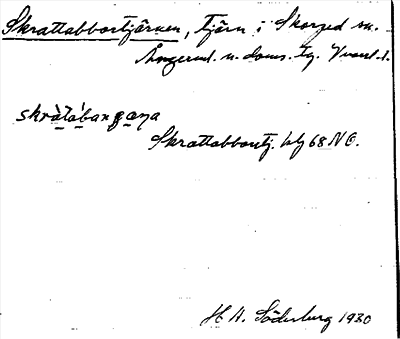 Skrattabbortjärnen, tjärn i Skorped sn.
Ångerml. n. doms. tg. Vnorl. l.
skràtábarʒəna
Skrattabbortj. bl 68 NO.
H. A. Söderberg 1930